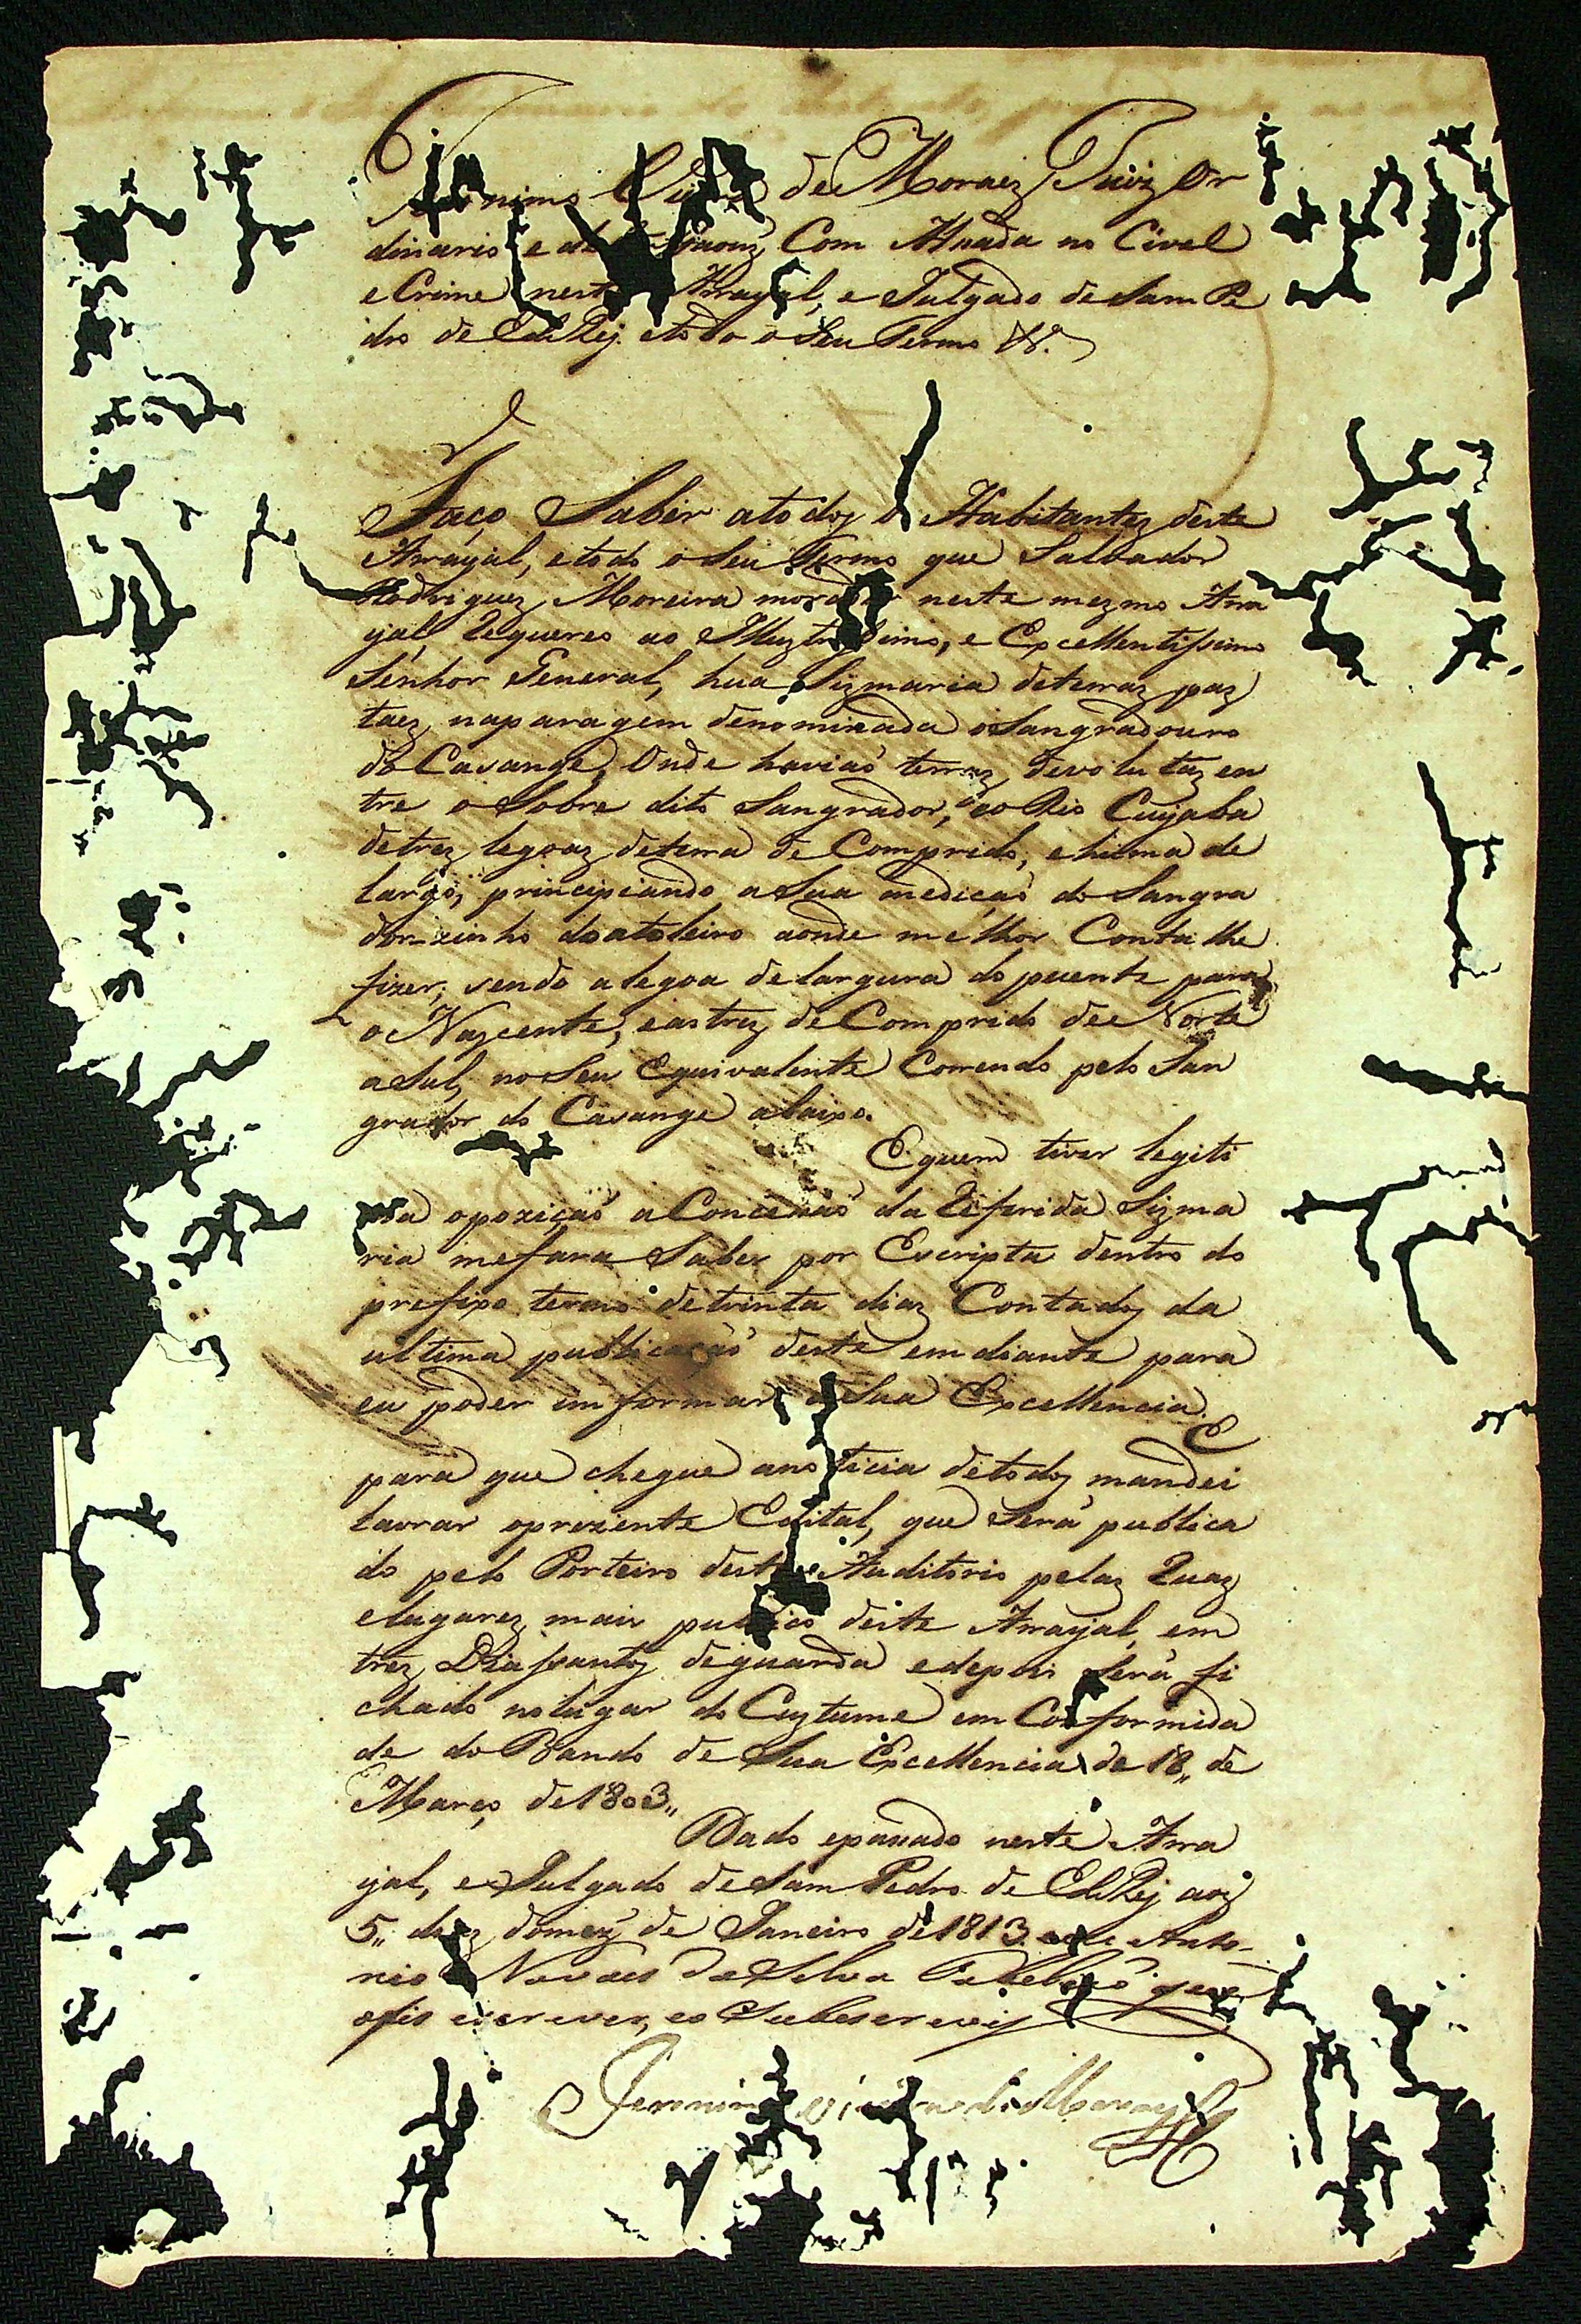 de Moraez Juiz Or
dinario e Com Alsada no Civel
e Crime nest Arrayal, e Julgado de Sam Pe
dro de El Rey e todo o Seu Termo &ª.
Faço Saber a todoz o Habitantez deste
Arrayal, e todo o Seu Termo que Salvador
Rodriguez Moreira morador neste mezmo Arra
yal Requereo ao Illuztrissimo, e Excellentissimo
Senhor General, hua Sizmaria de terraz paz
taez na paragem denominada o Sangradouro
do Casange, Onde havia'o terraz devolutaz en
tre o Sobre dito Sangrador, e o Rio Cuyaba
de trez legoaz de terra de Comprido, e huma de
largo, principiando a Sua medicaõ do Sangra
dorzinho do atoleiro aonde melhor Conta lhe
fizer, sendo a legoa de largura do puente para
o Nazcente, e as trez de Comprido de Norte
a Sul, no Seu Equivalente Correndo pelo San
grador do Casange abaixo.
E quem tiver legiti
ma opoziçaõ a Concessaõ da Referida Sizma
ria me fara Saber por Escripta dentro do
prefixo termo de trinta diaz Contadoz da
ultima publicaçaõ deste em diante para
eu poder imformar a Sua Excellencia. E
para que chegue a noticia de todoz mandei
lavrar o prezente Edital, que Será publica
do pelo Porteiro deste Auditorio pelaz Ruaz
e lugarez mais publico deste Arrayal, em
trez Dias santoz de guarda e depois Será fi
chado no lugar do Cuztume em Conformida
de do Bando de Sua Excellencia de 18,, de
Março de 1803,,
Dado e passado neste Arra
yal, e Julgado de Sam Pedro de El Rey aoz
5,, diaz do mez de Janeiro de 1813. Anto-
nio Novaes da Selva Tabeliaõ que
o fis escrever, e o Subescrevij
Jeronimo Vieira de Moraez